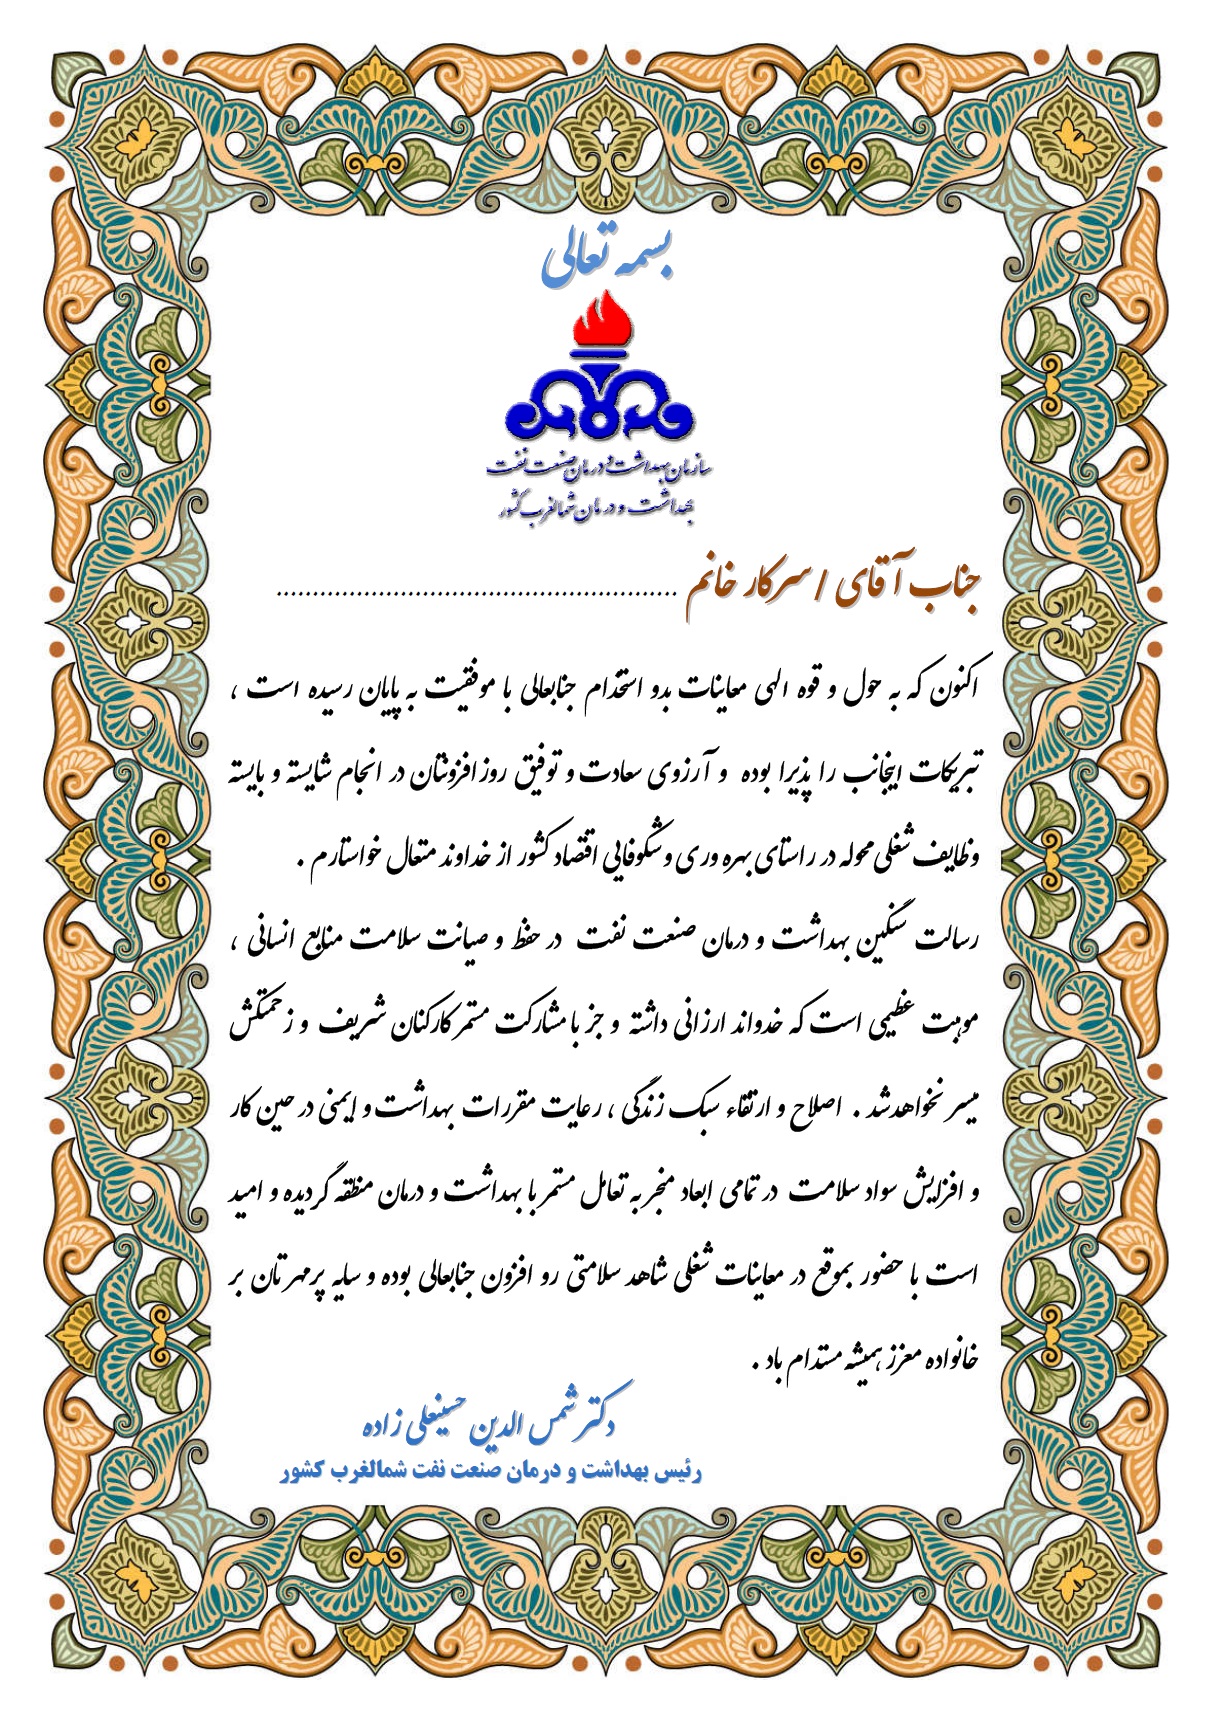 بسمه تعالی
سازمان بهداشت و درمان صنعت نفت
بهداشت و درمان شمالغرب کشور
جناب آقای / سرکار خانم ........................................................
اکنون که به حول و قوه الهی معاینات بدو استخدام جنابعالی با موفقیت به پایان رسیده است ،
تبریکات اینجانب را پذیرا بوده و آرزوی سعادت و توفیق روز افزونتان در انجام شایسته و بایسته
وظایف شغلی محوله در راستای بهره وری و شکوفایی اقتصاد کشور از خداوند متعال خواستارم .
رسالت سنگین بهداشت و درمان صنعت نفت در حفظ و صیانت سلامت منابع انسانی ،
موهبت عظیمی است که خدواند ارزانی داشته و جز با مشارکت مستمر کارکنان شریف و زحمتکش
میسر نخواهد شد . اصلاح و ارتقاء سبک زندگی ، رعایت مقررات بهداشت و ایمنی در حین کار
و افزایش سواد سلامت در تمامی ابعاد منجر به تعامل مستمر با بهداشت و درمان منطقه گردیده و امید
است با حضور بموقع در معاینات شغلی شاهد سلامتی رو افزون جنابعالی بوده و سایه پر مهرتان بر
خانواده معزز همیشه مستدام باد .
دکتر شمس الدین حسینعلی زاده
رئیس بهداشت و درمان صنعت نفت شمالغرب کشور